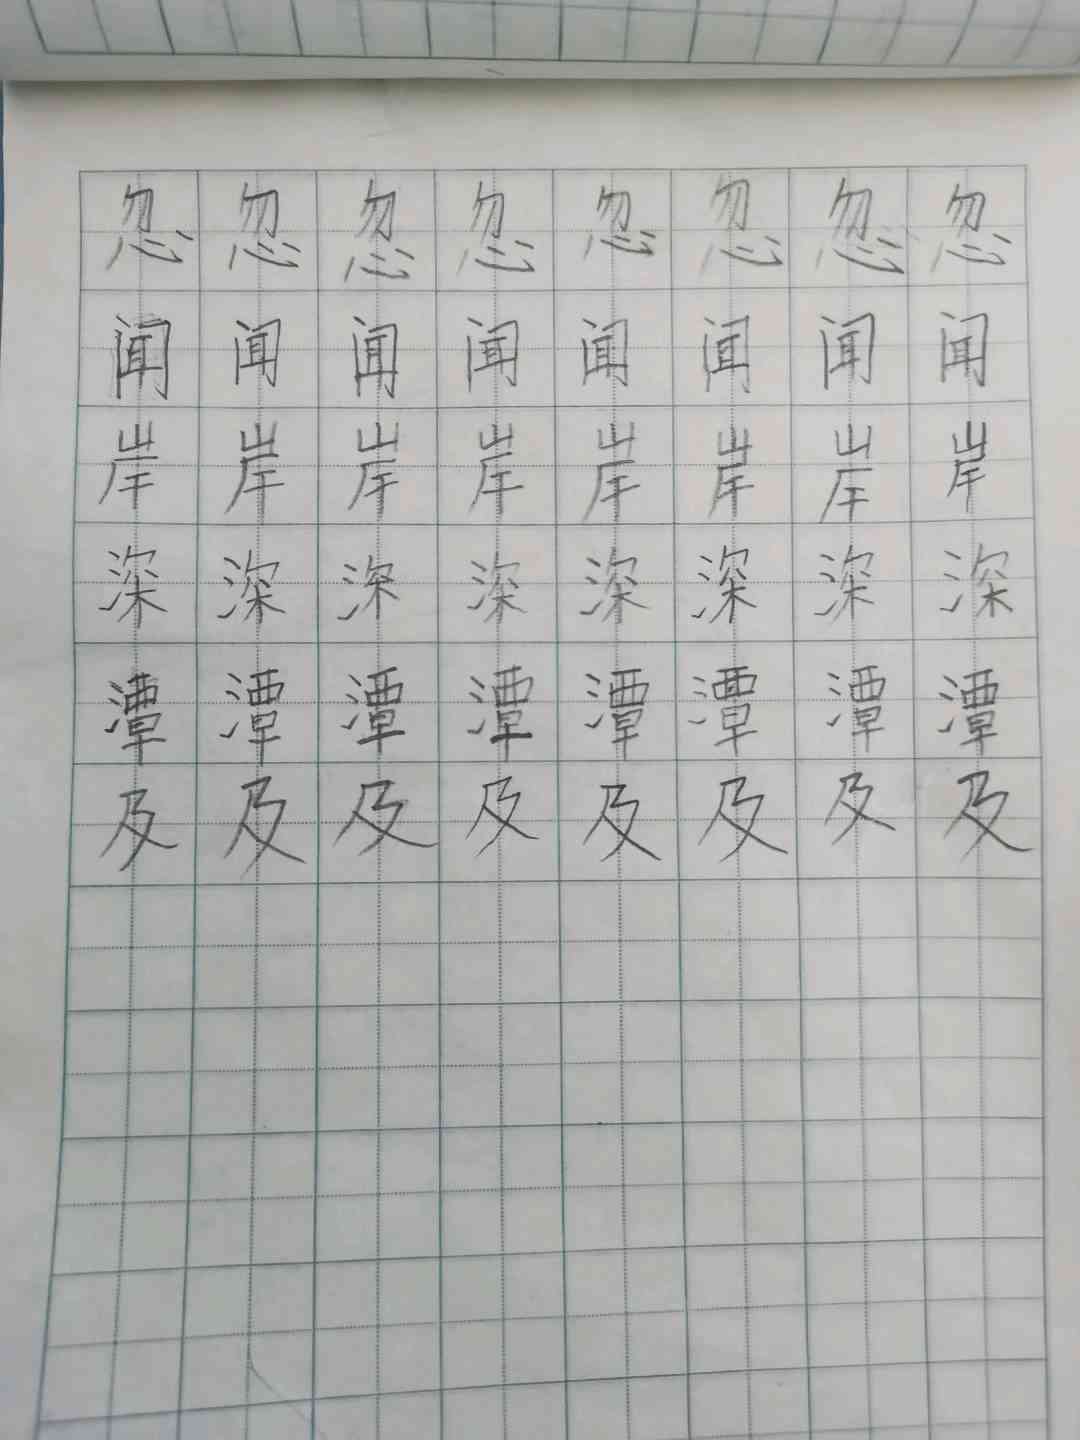 忽忽忽忽忽忽忽忽
闻闻闻闻闻闻闻闻
岸岸岸岸岸岸岸岸
深深深深深深深深
潭潭潭潭潭潭潭潭
及及及及及及及及